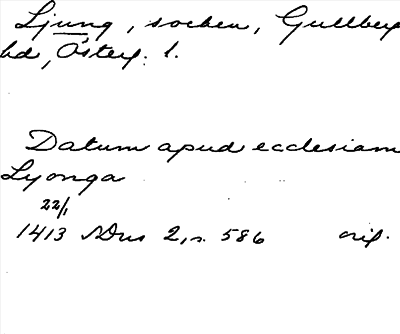 Ljung, socken, Gullberg
hd, Österg. l.
Datum apud ecclesiam
Lyonga
22/1
1413 SDns 2, n. 586 orig.